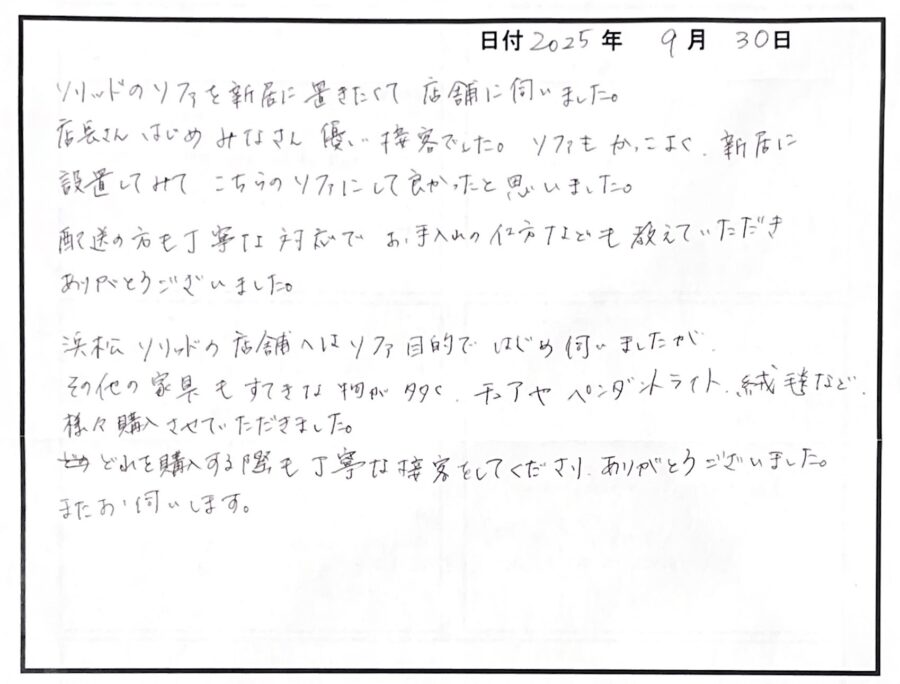 日付 2025 年 9 月 30 日
ソリッドのソファを新居に置きたくて 店舗に伺いました。
店長さん はじめ みなさん 優しい 接客でした。ソファも かっこよく、新居に
設置してみて こちらのソファにして良かったと思いました。
配送の方も丁寧な対応で お手入れの仕方なども教えていただき
ありがとうございました。
浜松ソリッドの店舗へはソファ目的で はじめ伺いましたが、
その他の家具もすてきな物が多く、チェアや ペンダントライト、絨毯など、
様々購入させていただきました。
どれを購入する際も丁寧な接客をしてくださり、ありがとうございました。
またお伺いします。